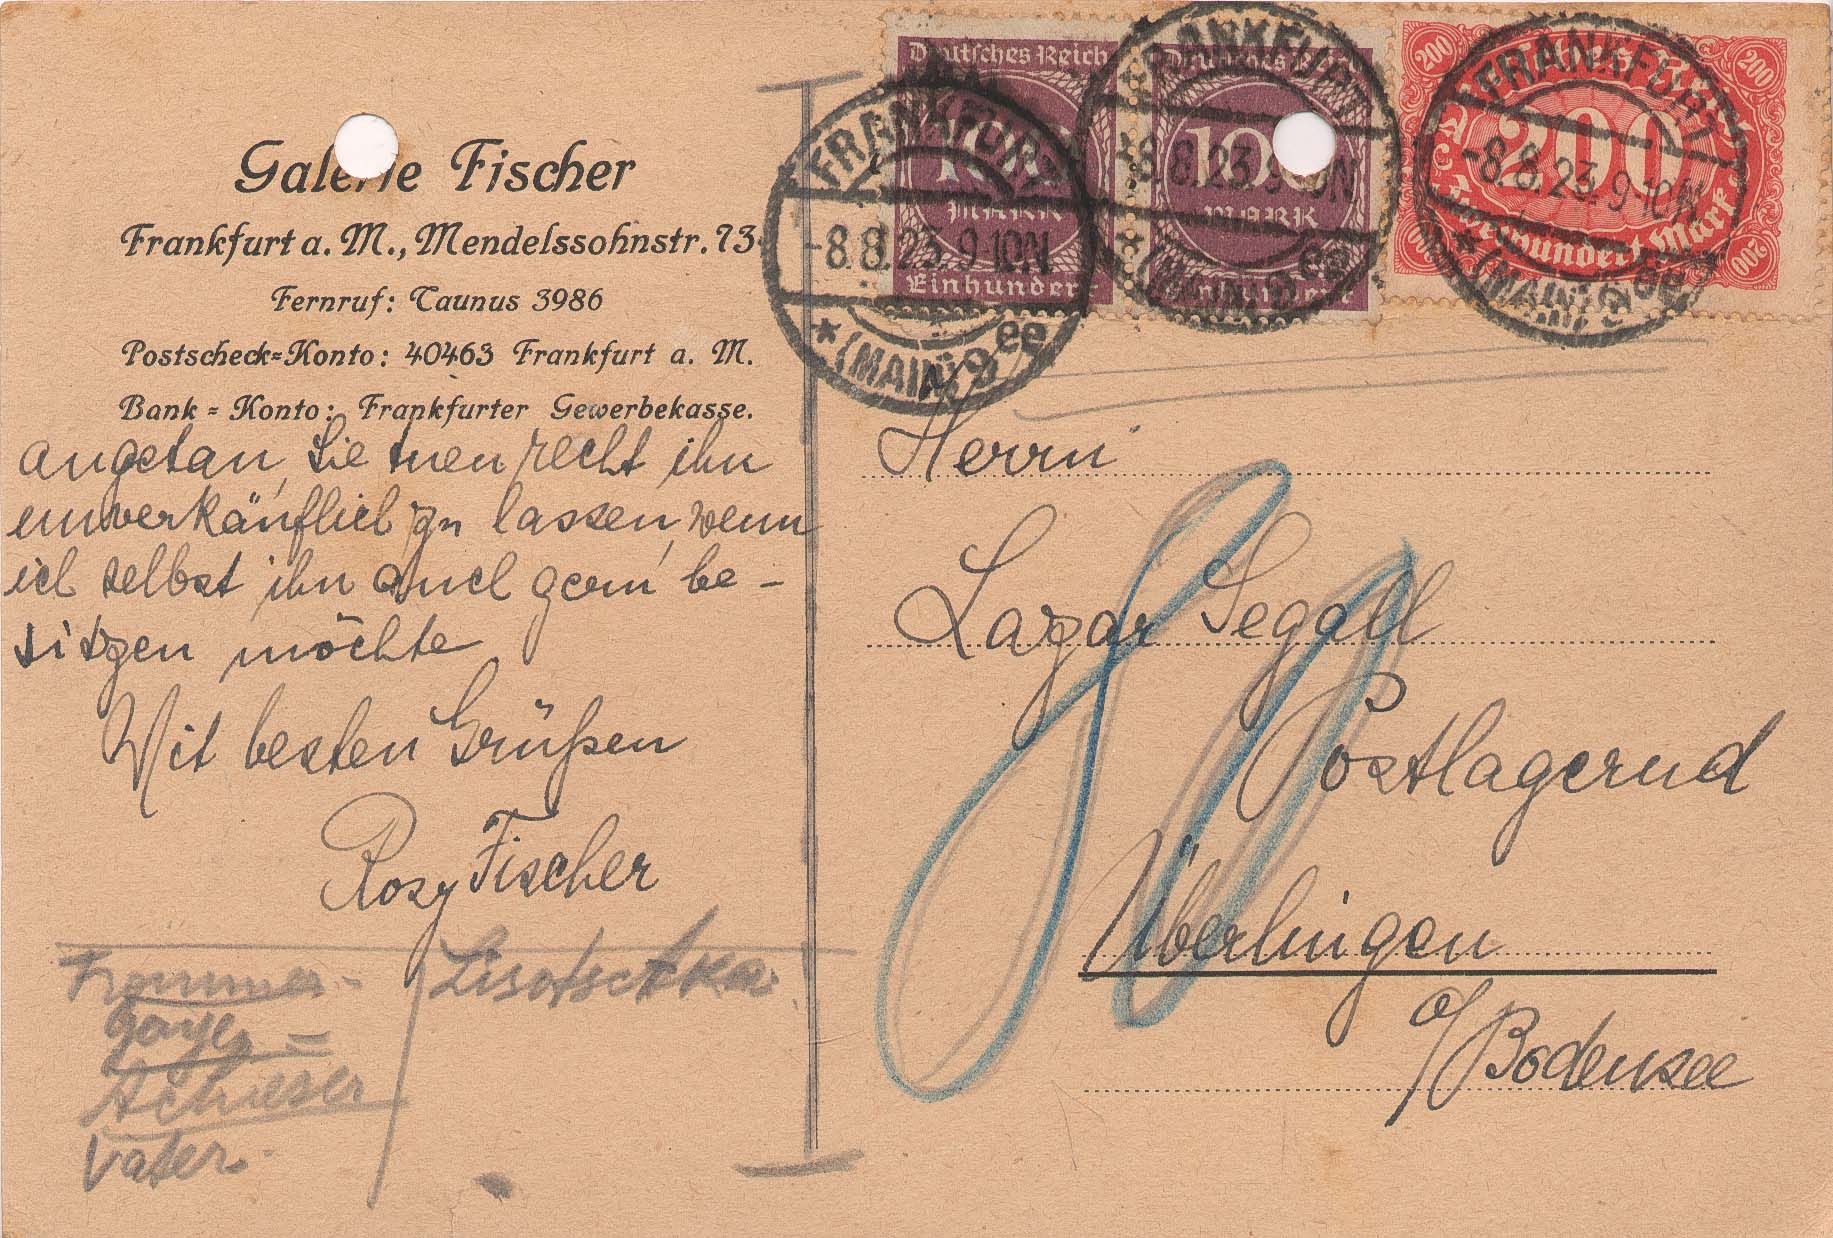 Galerie Fischer
Frankfurt a. M., Mendelssohnstr. 73
Fernruf: Taunus 3986
Postscheck=Konto: 40463 Frankfurt a. M.
Bank = Konto: Frankfurter Gewerbekasse.
angetan, Sie tuen recht ihn
unverkäuflich zu lassen, wenn
ich selbst ihn auch gern be-
sitzen möchte
Mit besten Grüßen
Rosy Fischer
Lisotschka
Schieser
Vater
Deutsches Reich
100
MARK
Einhundert
Deutsches Reich
100
MARK
Einhundert
200
200
200
Zweihundert Mark
200
FRANKFURT
-8.8.23. 9-10N
* (MAIN) 9 ee
FRANKFURT
-8.8.23. 9-10N
* (MAIN) 9 ee
FRANKFURT
-8.8.23. 9-10N
* (MAIN) 9 ee
Herrn
Lazar Segall
Postlagernd
Überlingen
a/Bodensee
80